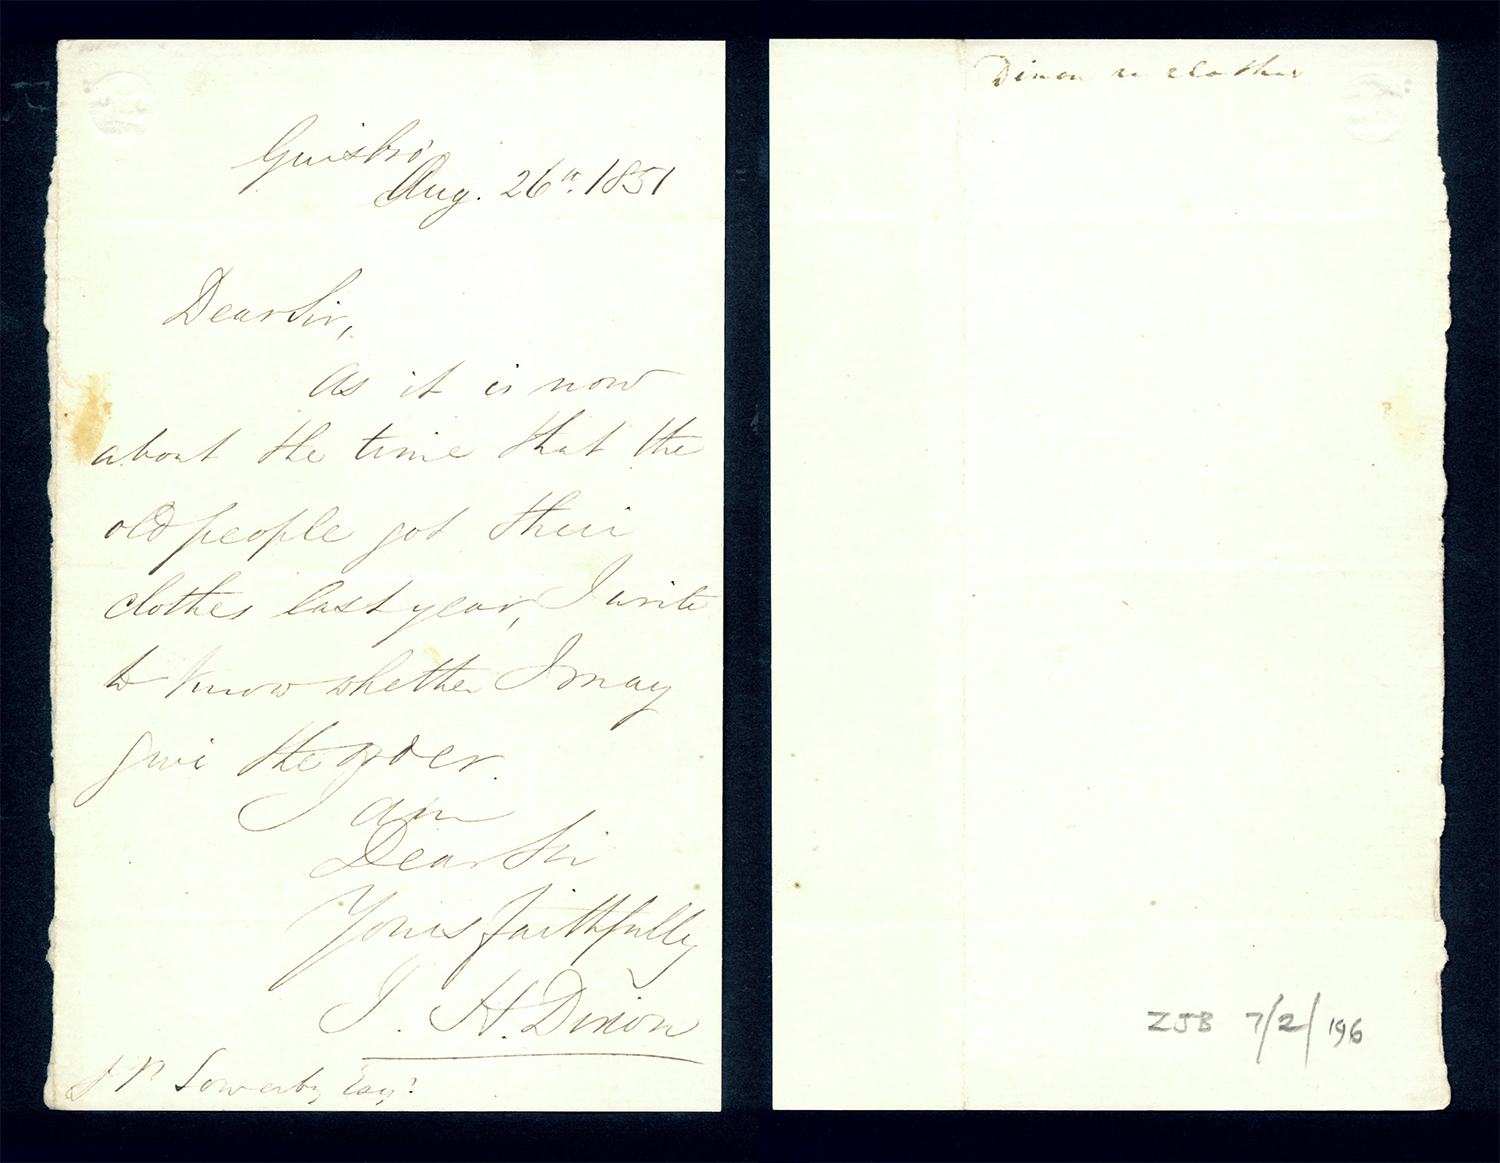 Guisbro'
Aug. 26th. 1851
Dear Sir,
As it is now
about the time that the
old people got their
clothes last year, I write
to know whether I may
give the order.
I am
Dear Sir
Yours faithfully
J. H. Dixon
J P Sowerby Esqr.
Dixon re clothes
ZJB 7/2/196